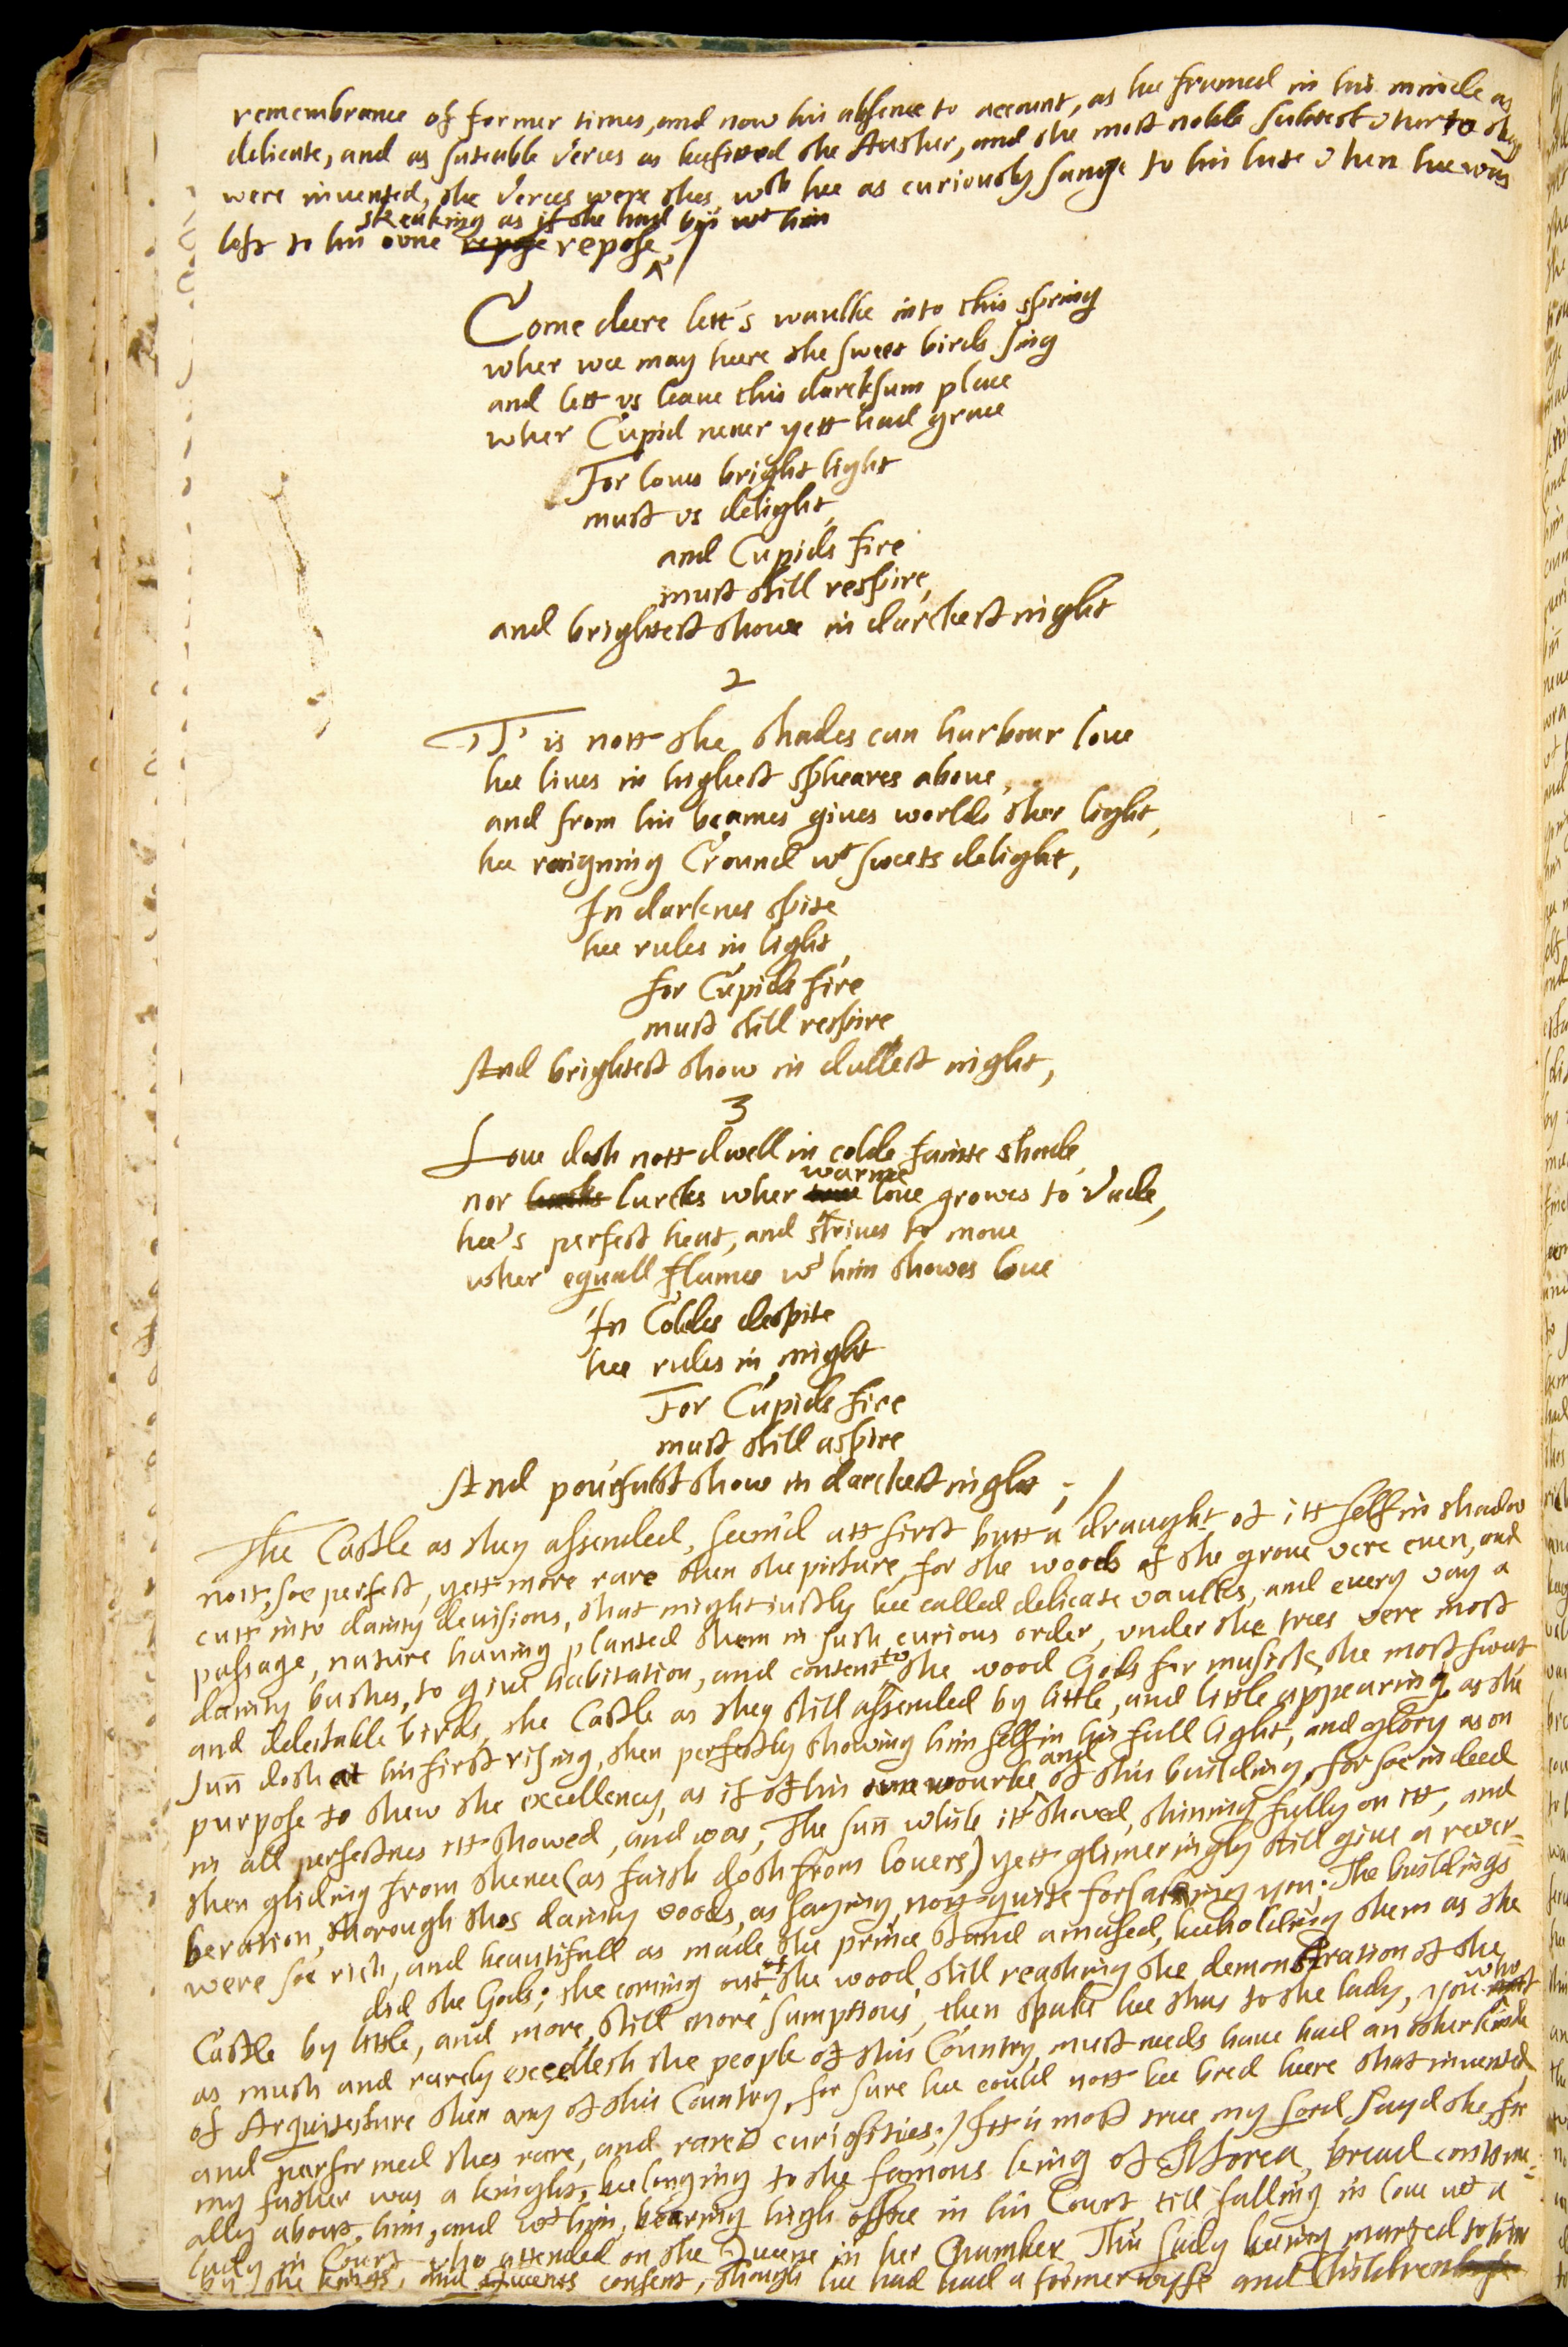 remembrance of former times, and now his absence to account, as hee framed in his minde as
delicate, and as suteable verces as beefitted the Auther, and the most noble subiect wherto they
were invented, the verces were thes, wch hee as curiously sange to his lute when hee was
speaking as if she had bin wt him
left to his owne repose repose,
Come deere lett's waulke into this spring
wher wee may heere the sweet birds sing
and lett vs leaue this darcksum place
wher Cupid neuer yett had grace
For loues bright light
must vs delight,
and Cupids fire
must still respire,
and brightest showe in darckest night
2
'T' is nott the shades can harbour loue
hee liues in highest spheares aboue,
and from his beames giues worlds ther light,
hee raigning Cround wt sweets delight,
In darknes spite
hee rules in light,
for Cupids fire
must still respire
And brightest show in dullest night,
3
Loue doth nott dwell in colde fainte shade,
warmee
nor lurcks lurcks wher loue growes to vade,
hee's perfect heat, and striues to moue
wher equall flames wt him showes loue
In Coldes despite
hee rules in might
For Cupids fire
must still aspire
And powrfulst show in darckest night ;/
The Castle as they assended, seem'd att first butt a draught of itt self in shadow
nott soe perfect, yett more rare then the picture, for the woods of the groue were euen, and
cutt into dainty deuisions, that might iustly bee called delicate vaultes, and euery way a
passage, nature hauing planted them in such curious order, vnder the trees were most
dainty bushes, to giue habitation, and content to the wood Gods for musick, the most sweet
and delectable birds, the Castle as they still assended by little, and little appearing, as the
sun doth att his first rising, then perfectly showing him self in his full light, and glory as on
purpose to shew the excellency, as if of his owne wourke and of this building, for soe indeed
in all perfectnes itt showed, and was, The sun while itt showed, shinning fully on itt, and
then gliding from thence (as faith doth from louers) yett glimeringly still giue a reuer=
beration, thorough thes dainty woods, as saying, nott quite forsaking you; The buildings
were soe rich, and beautifull as made the prince stand amased, beeholding them as she
did the Gods; the coming out of the wood still reaching the demonstration of the
Castle by little, and more, still more sumptious, then spake hee thus to the lady, you who
as much and rarely excelleth the people of this Country, must needs haue had an other kinde
of Arquitecture then any of this Country, for sure hee could nott bee bred heere that inuented,
and parformed thes rare, and rarest curiosities;/ Itt is most true my Lord sayd she, for
my father was a knight, beelonging to the famous king of Morea, bread continu=
ally about him, and wt him, bearing high office in his Court, till falling in loue wt a
lady in Court who attended on the Queene in her Chamber, This Lady beeing maried to him
by the kings, and Queenes consent, though hee had had a former wyfe and Children